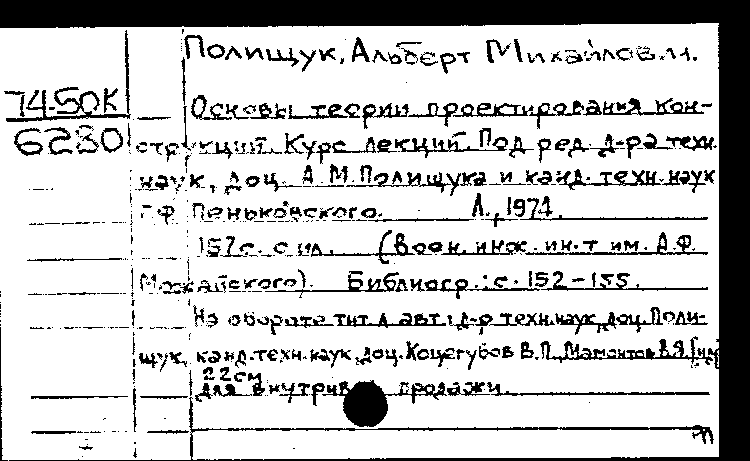 Полищук, Альберт Михайлов.
74-50К
Основы теории проектирования кон-
6280
струкций. Курс лекций. Под ред. д-ра техн.
наук, доц. А.М. Полищука и канд. техн. наук
Г.Ф. Пеньковского. Л., 1974.
157с. с ил. (Воен. инж. ин-т им. А.Ф.
Можайского). Библиогр.: с. 152-155.
На обороте тит. л. авт.: д-р техн. наук, доц. Поли-
щук, канд. техн. наук, доц. Коцегубов В.П., Мамонтов В.Я. [и др.]
22см
для внутрив. продажи.